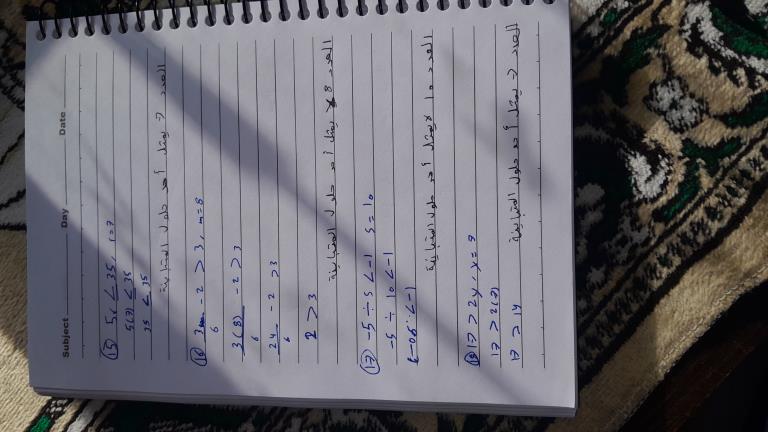 Subject Day Date
(15) 5r ≤ 35, r = 7
5(7) ≤ 35
35 ≤ 35
العدد 7 يمثل أحد حلول المتباينة
(16) 3m/6 - 2 > 3, m = 8
3(8)/6 - 2 > 3
24/6 - 2 > 3
2 > 3
العدد 8 لا يمثل أحد حلول المتباينة
(17) -5 ÷ s < -1 s = 10
-5 ÷ 10 < -1
-0.5 < -1
العدد 10 لا يمثل أحد حلول المتباينة
17 > 2y y = 7
17 > 2(7)
17 > 14
العدد 7 يمثل أحد حلول المتباينة